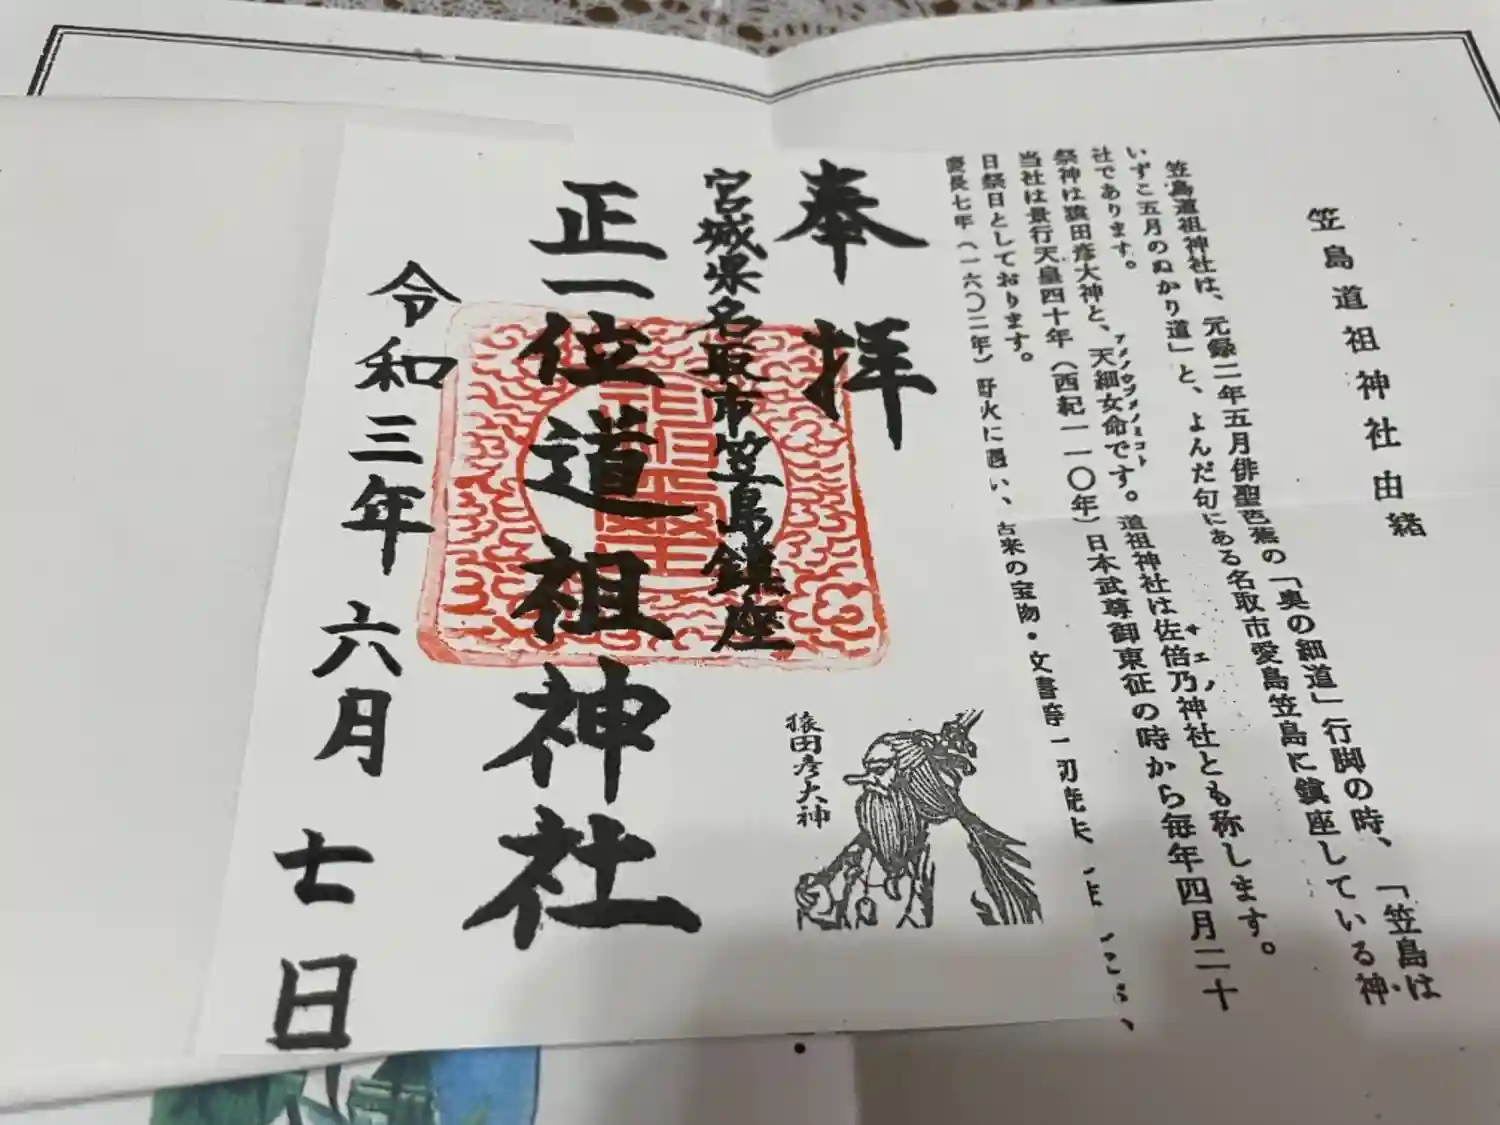 笠島道祖神社由緒
笠島道祖神社は、元録二年五月俳聖芭蕉の「奥の細道」行脚の時、「笠島は
いずこ五月のぬかり道」と、よんだ句にある名取市愛島笠島に鎮座している神
社であります。
サエノ
アメノウヅメノミコト
祭神は猿田彦大神と、天細女命です。道祖神社は佐倍乃神社とも称します。
当社は景行天皇四十年(西紀一一〇年)日本武尊御東征の時から毎年四月二十
日祭日としております。
慶長七年(一六〇二年)野火に遇い、古来の宝物・文書等一切焼失
奉拝
宮城県名取市笠島鎮座
正一位道祖神社
令和三年六月七日
猿田彦大神